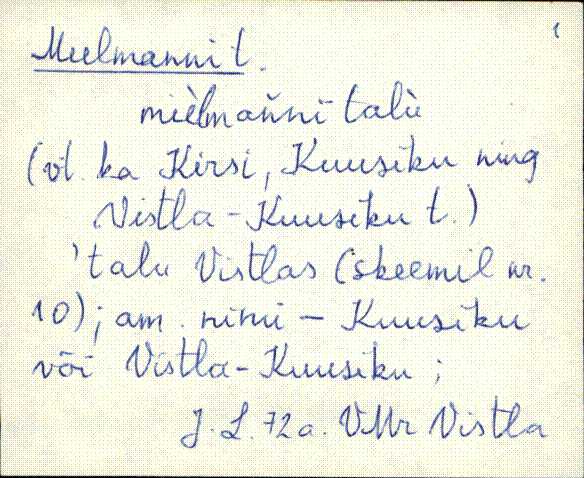 1
Meelmanni t.
mièlmańni talù
(vt. ka Kirsi, Kuusiku ning
Vistla-Kuusiku t.)
'talu Vistlas (skeemil nr.
10); am. nimi - Kuusiku
või Vistla-Kuusiku;
J. L. 72 a. VMr Vistla